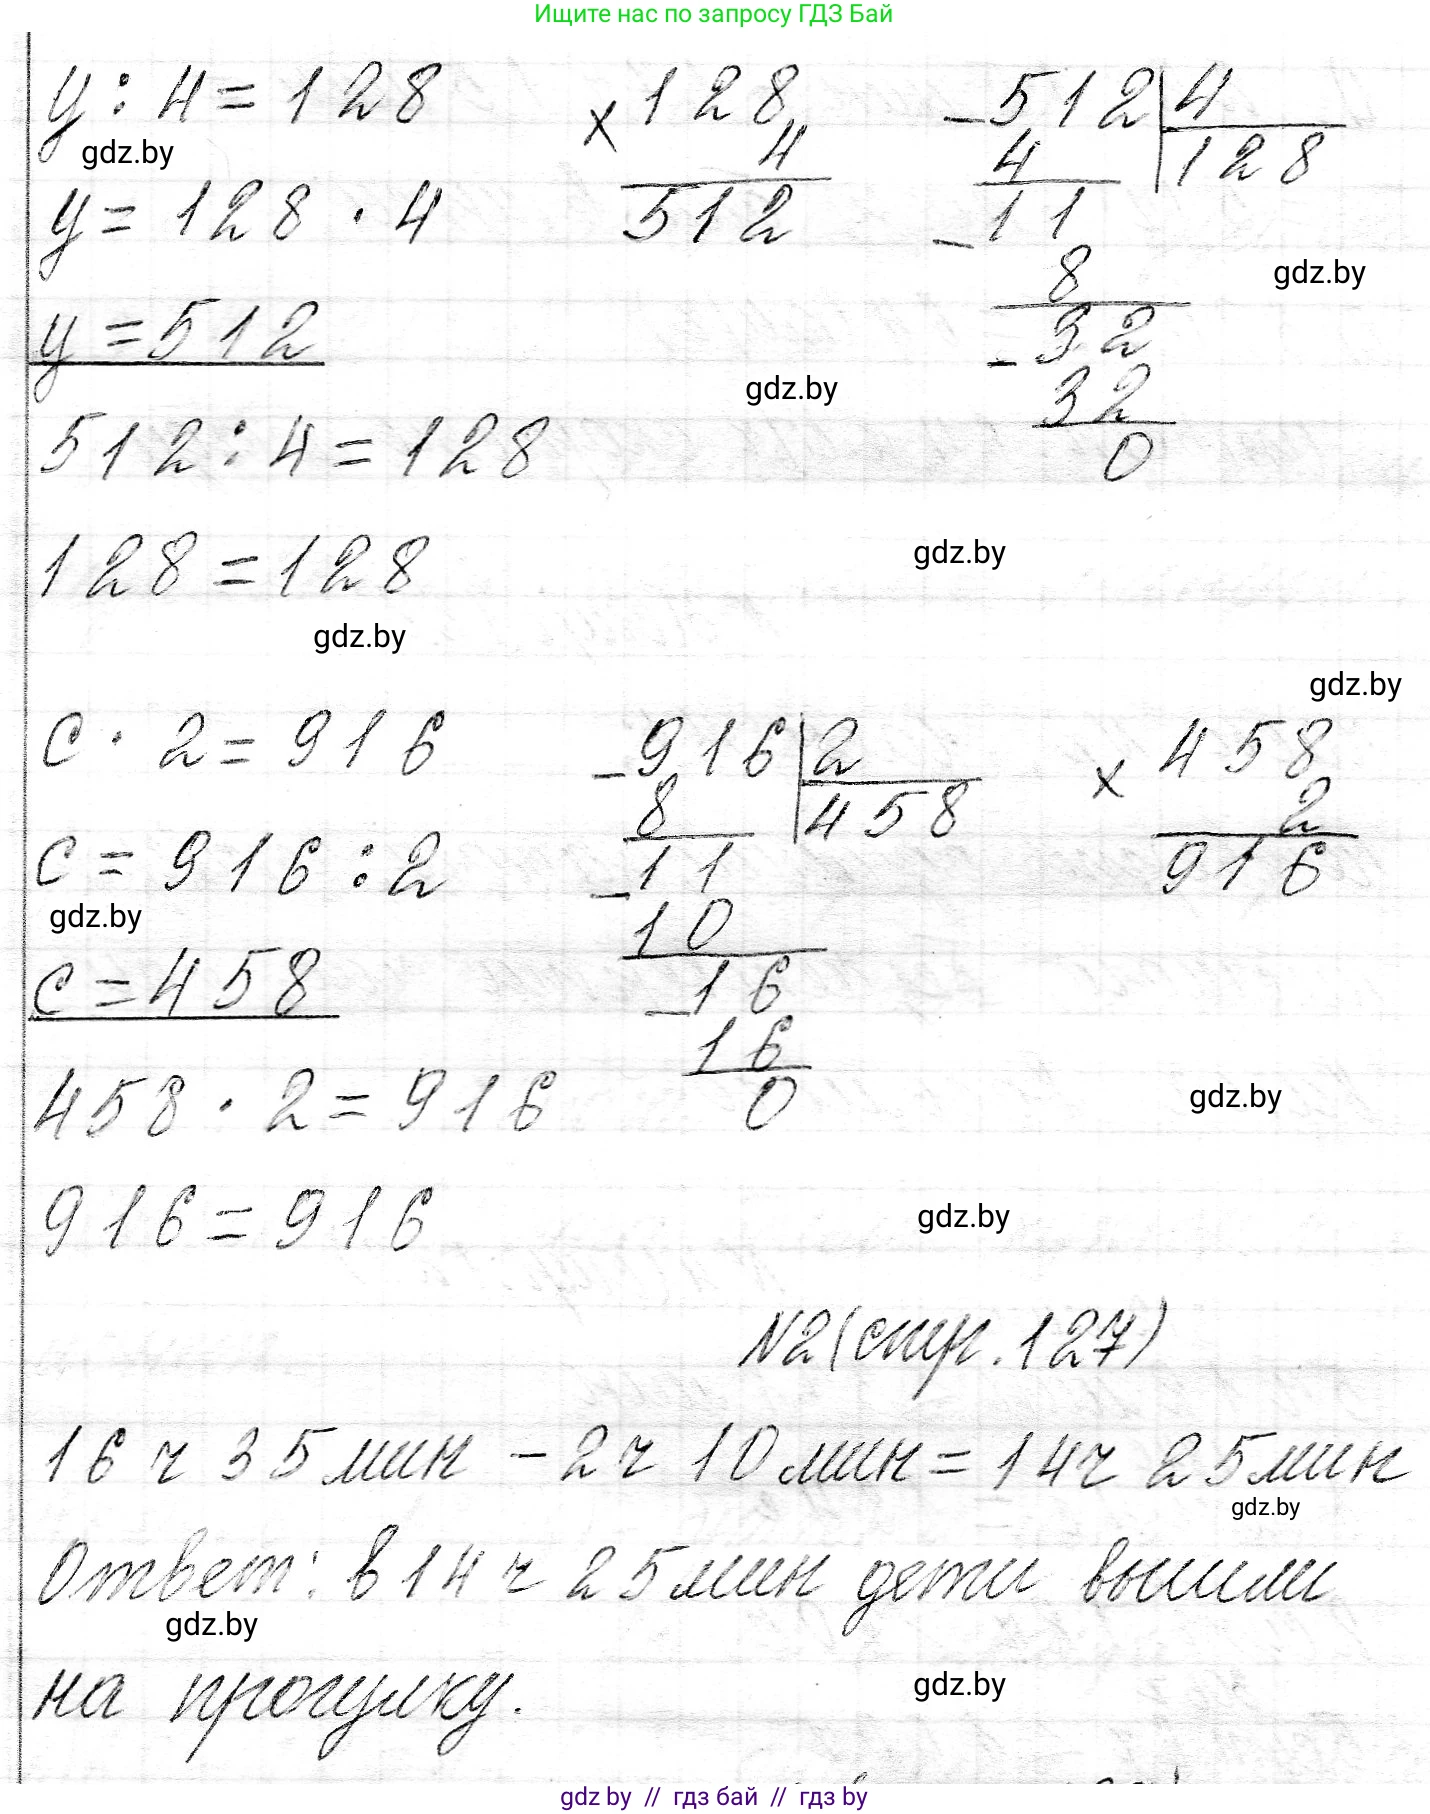 Ищите нас по запросу ГДЗ Бай
у : 4 = 128
× 128
4
512
- 512 | 4
4 128
- 11
8
- 32
32
0
gdz.by
у = 128 · 4
gdz.by
у = 512
gdz.by
512 : 4 = 128
128 = 128
gdz.by
gdz.by
gdz.by
с · 2 = 916
- 916 | 2
8 458
- 11
10
- 16
16
0
× 458
2
916
с = 916 : 2
gdz.by
с = 458
458 · 2 = 916
gdz.by
916 = 916
gdz.by
№2 (стр. 127)
16 ч 35 мин - 2 ч 10 мин = 14 ч 25 мин
gdz.by
Ответ: в 14 ч 25 мин дети вышли
gdz.by
на прогулку.
gdz.by
gdz by // гдз бай // гдз by